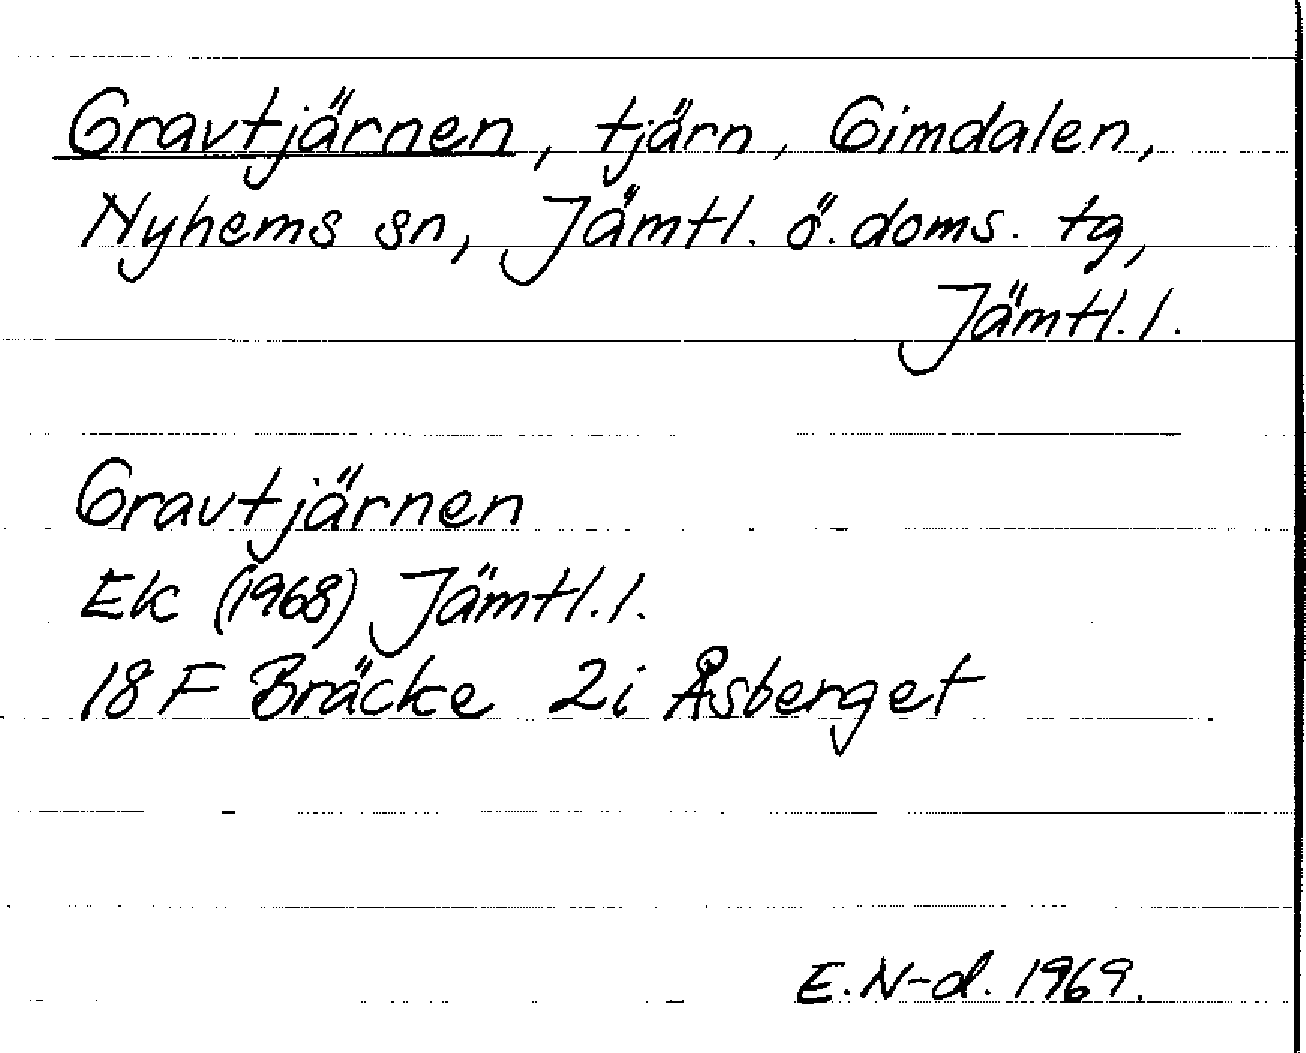 Gravtjärnen, tjärn, Gimdalen,
Nyhems sn, Jämtl. ö. doms. tg,
Jämtl. l.
Gravtjärnen
Ek (1968) Jämtl. l.
18 F Bräcke 2i Åsberget
E. N-d. 1969.